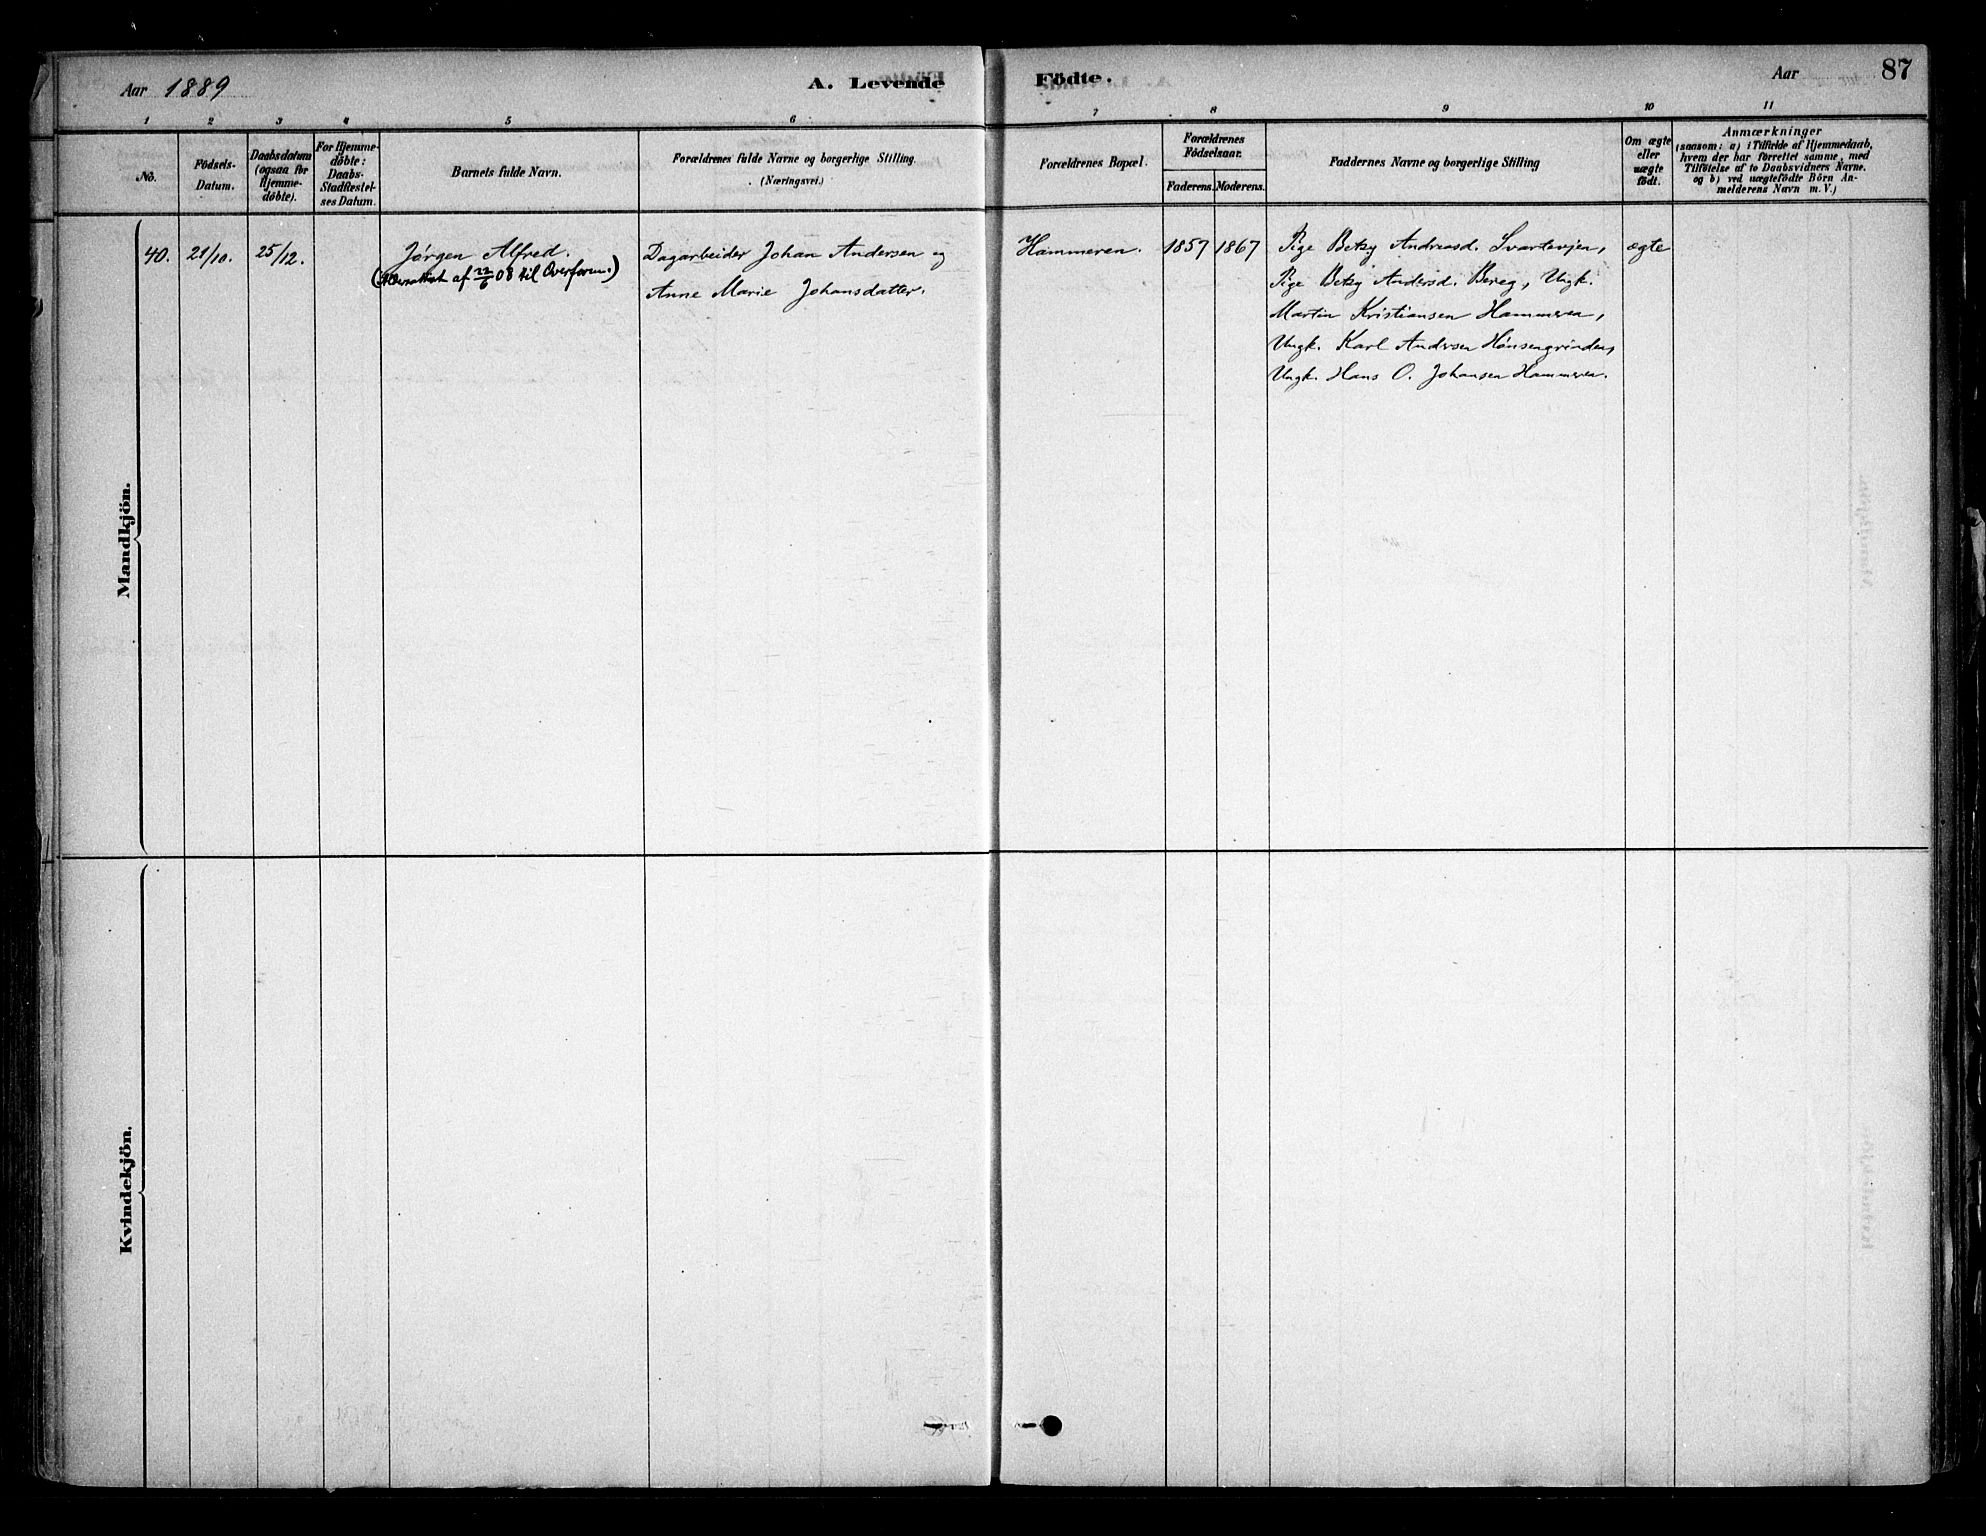 Aar 1889
A. Levende
Födte.
Aar
87
1 2 3 4 5 6 7 8 9 10 11
No.
Födsels-
Datum.
Daabsdatum
(ogsaa for
Hjemme-
döbte).
For Hjemme-
döbte:
Daabs-
Stadfæstel-
ses Datum.
Barnets fulde Navn.
Forældrenes fulde Navne og borgerlige Stilling.
(Næringsvei.)
Forældrenes Bopæl.
Forældrenes
Födselsaar.
Faderens. Moderens.
Faddernes Navne og borgerlige Stilling
Om ægte
eller
uægte
født.
Anmærkninger
(saasom: a) i Tilfælde af Hjemmedaab,
hvem der har forrettet samme, med
Tilföielse af to Daabsvidners Navne.
og b) ved uægtefödte Börn An-
melderens Navn m. V.)
Mandkjön.
40.
21/10.
25/12.
Jørgen Alfred.
af 22/6 08 til Overform.)
Dagarbeider Johan Andersen og
Anne Marie Johansdatter.
Hammeren.
1857
1867
Pige Betzy Andreasd. Svartevjen,
Pige Betzy Andersd. Ungk.
Martin Kristiansen Hammeren,
Ungk. Karl Andersen Hønsengrinden,
Ungk. Hans O. Johansen Hammeren.
ægte
Kvindekjön.